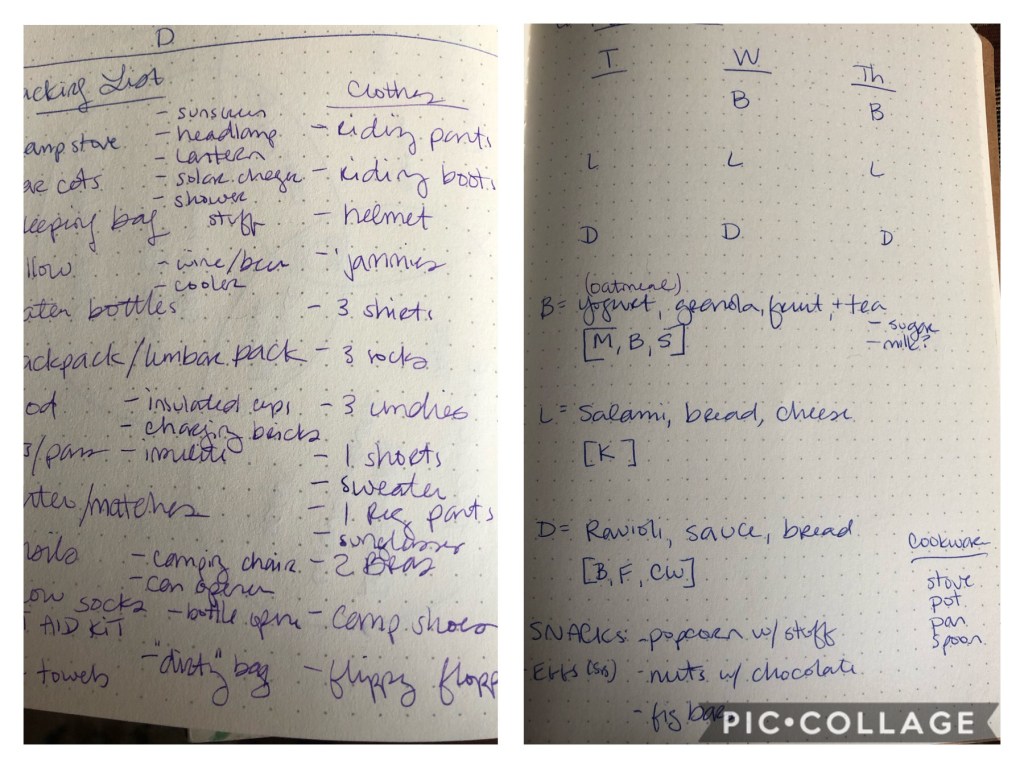 D
acking List
amp stove
ar cots
leeping bag
llow
ater bottles
ackpack/lumbar pack
od
/pan
/matches
ow socks
AID KIT
towels
- sunscreen
- headlamp
- Lantern
- solar charger
- shower
stuff
- wine/beer
- cooler
- insulated cups
- charging bricks
- camping chair
- can opener
- bottle opener
- "dirty" bag
Clothes
- riding pants
- riding boots
- helmet
- jammies
- 3 shirts
- 3 socks
- 3 undies
- 1 shorts
- sweater
- 1 Reg pants
- sunglasses
- 2 BRAs
- Camp shoes
- flippy flopp
T
W
Th
B
B
L
L
L
D
D
D
(oatmeal)
B = yogurt, granola, fruit, + tea
- sugar
- milk?
[M, B, S]
L = Salami, bread, cheese
[K]
D = Ravioli, sauce, bread
[B, F, CW]
Cookware
stove
pot
pan
spoon
SNACKS: - popcorn w/ stuff
- nuts w/ chocolate
- fig bars
PIC•COLLAGE